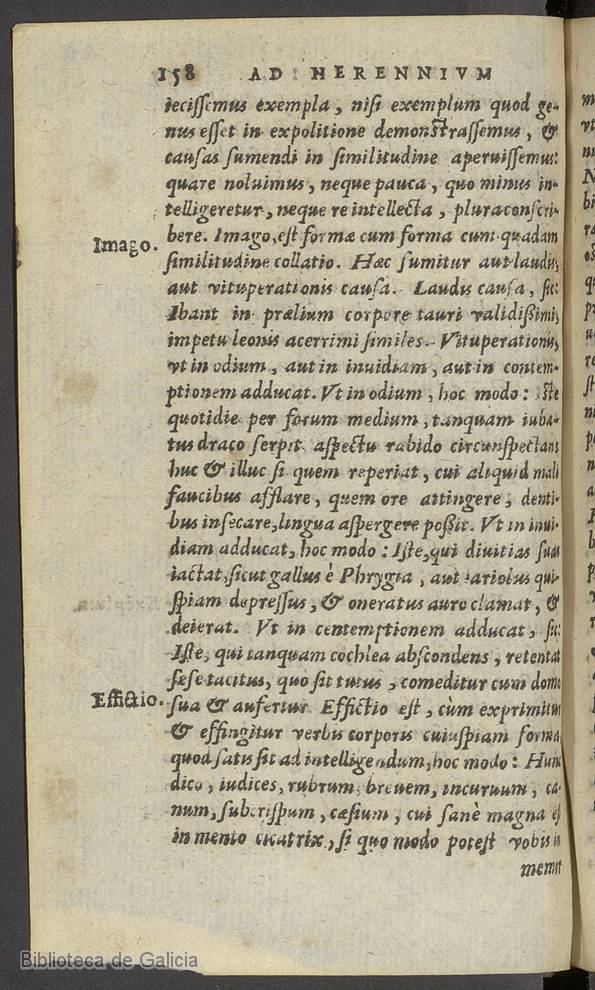 158 AD HERENNIVM
iecißemus exempla, nisi exemplum quod ge-
nus esset in expolitione demonstraßemus, &
causas sumendi in similitudine aperuissemus:
quare noluimus, neque pauca, quo minus in-
telligeretur, neque re intellecta, plura conscri-
Imago.
bere. Imago, est formæ cum forma cum quadam
similitudine collatio. Hæc sumitur aut laudis,
aut vituperationis causa. Laudis causa, sic:
Ibant in prælium corpore tauri validißimi,
impetu leonis acerrimi similes. Vituperationis,
vt in odium, aut in inuidiam, aut in contem-
ptionem adducat. Vt in odium, hoc modo: Iste
quotidie per forum medium, tanquam iuba-
tus draco serpit aspectu rabido circunspectans
huc & illuc si quem reperiat, cui aliquid mali
faucibus afflare, quem ore attingere, denti-
bus insecare, lingua aspergere poßit. Vt in inui-
diam adducat, hoc modo: Iste, qui diuitias suas
iactat, sicut gallus è Phrygia, aut ariolus qui-
spiam depressus, & oneratus auro clamat, &
deierat. Vt in contemptionem adducat, sic:
Iste, qui tanquam cochlea abscondens, retentat
sese tacitus, quo sit tutus, comeditur cum domo
Effictio.
sua & aufertur. Effictio est, cùm exprimitur
& effingitur verbis corporis cuiuspiam forma
quod satis sit ad intelligendum, hoc modo: Hunc
dico, iudices, rubrum, breuem, incuruum, ca-
num, subcrispum, cæsium, cui sanè magna est
in mento cicatrix, si quo modo potest vobis in
memor
Biblioteca de Galicia